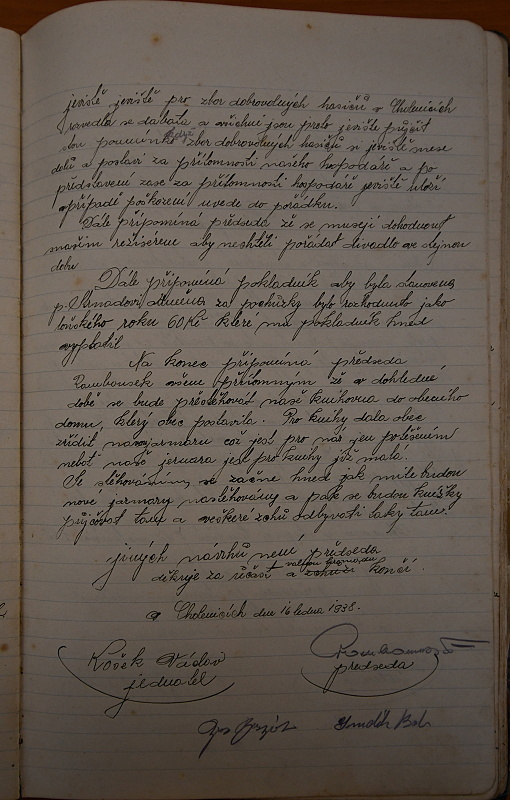 jeviště jeviště pro zbor dobrovolných hasičů v Cholenicích
rozvedla se dabata a všichni jsou proto jeviště půjčit
pouminko když zbor dobrovolných hasičů si jeviště
dobů a postaví za přítomnosti našeho hospodáře a po
představení zase za přítomnosti hospodáře jeviště uloží
případě poškození uvede do pořádku.
Dále připomíná předseda že se musejí dohodnout
našim režisérem aby nechtěli pořádat divadlo ve stejnou
dobu
Dále připomíná pokladník aby byla stanovena
p. odměna za pochůzky bylo rozhodnuto jako
loňského roku 60 Kč které mu pokladník hned
vyplatil
Na konec připomíná předseda
Rambousek všem přítomným že v dohledné
době se bude přestěhovat naše knihovna do obecního
domu, který obec postavila. Pro knihy dala obec
zříditi novou jarmaru což jest pro nás jen potěšením
neboť naše jarmara jest pro knihy již malá.
Se stěhováním se začne hned jak mile budou
nové jarmary nastěhovány a pak se budou knížky
půjčovat tam a veškeré schů odbyvati taky tam.
jiných návrhů není předseda
děkuje za účast a valnou hromadu schůzi končí.
V Cholenicích dne 16 ledna 1938.
Košek Václav
jednatel
Rambousek
předseda